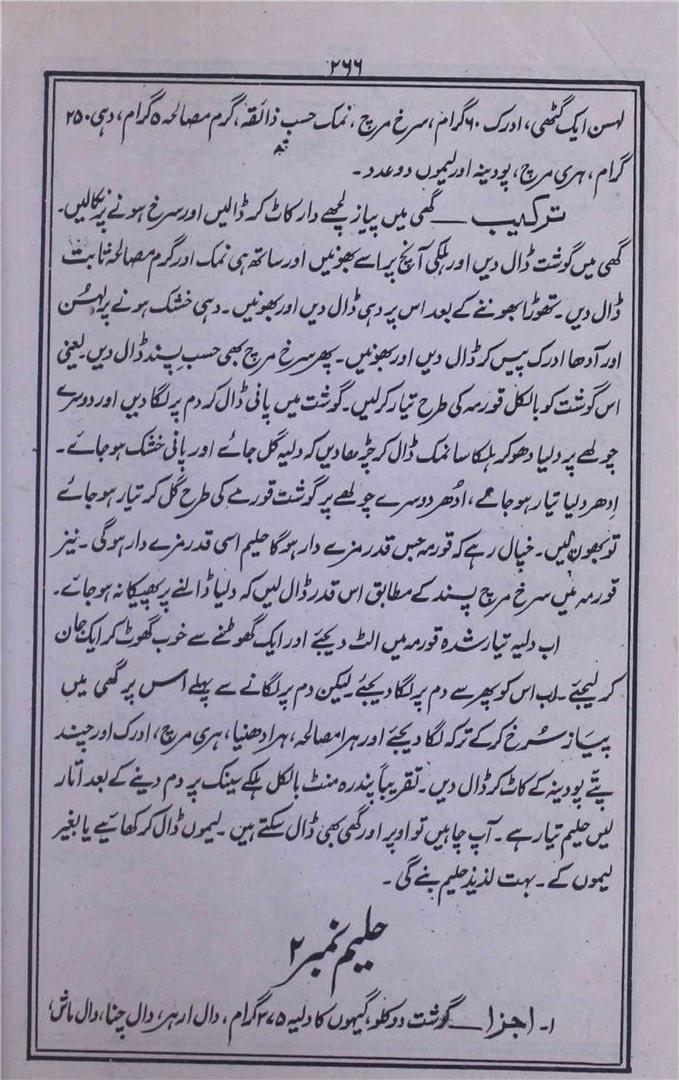 ۲۶۶
لہسن ایک گٹھی، ادرک ۶۰ گرام، سرخ مرچ، نمک حسب ذائقہ، گرم مصالحہ ۵ گرام، دہی ۲۵۰
گرام، ہری مرچ، پودینہ اور لیموں دو عدد۔
ترکیب ــ گھی میں پیاز لچھے دار کاٹ کر ڈالیں اور سرخ ہونے پر نکالیں۔
گھی میں گوشت ڈال دیں اور ہلکی آنچ پر اسے بھونیں اور ساتھ ہی نمک اور گرم مصالحہ ثابت
ڈال دیں۔ تھوڑا بھوننے کے بعد اس پر دہی ڈال دیں اور بھونیں۔ دہی خشک ہونے پر لہسن
اور آدھا ادرک پیس کر ڈال دیں اور بھونیں۔ پھر سرخ مرچ بھی حسبِ پسند ڈال دیں۔ یعنی
اس گوشت کو بالکل قورمہ کی طرح تیار کرلیں۔ گوشت میں پانی ڈال کر دم پر لگا دیں اور دوسرے
چولھے پر دلیا دھو کر ہلکا سا نمک ڈال کر چڑھا دیں کہ دلیہ گل جائے اور پانی خشک ہو جائے۔
اِدھر دلیا تیار ہو جائے، اُدھر دوسرے چولھے پر گوشت قورمے کی طرح گل کر تیار ہو جائے
تو بھون لیں۔ خیال رہے کہ قورمہ جس قدر مزے دار ہو گا حلیم اسی قدر مزے دار ہو گی۔ نیز
قورمہ میں سرخ مرچ پسند کے مطابق اس قدر ڈال لیں کہ دلیا ڈالنے پر پھیکا نہ ہو جائے۔
اب دلیہ تیار شدہ قورمہ میں الٹ دیجئے اور ایک گھوٹنے سے خوب گھوٹ کر ایک جان
کر لیجئے۔ اب اس کو پھر سے دم پر لگا دیجئے لیکن دم پر لگانے سے پہلے اس پر گھی میں
پیاز سُرخ کر کے ترکہ لگا دیجئے اور ہرا مصالحہ، ہرا دھنیا، ہری مرچ، ادرک اور چند
پتے پودینہ کے کاٹ کر ڈال دیں۔ تقریباً پندرہ منٹ بالکل ہلکے سینک پر دم دینے کے بعد اُتار
لیں حلیم تیار ہے۔ آپ چاہیں تو اوپر اور گھی بھی ڈال سکتے ہیں۔ لیموں ڈال کر کھائیے یا بغیر
لیموں کے۔ بہت لذیذ حلیم بنے گی۔
حلیم نمبر ۲
۱۔ اجزا ــ گوشت دو کلو، گیہوں کا دلیہ ۳۷۵ گرام، دال ارہر، دال چنا، دال ماش،